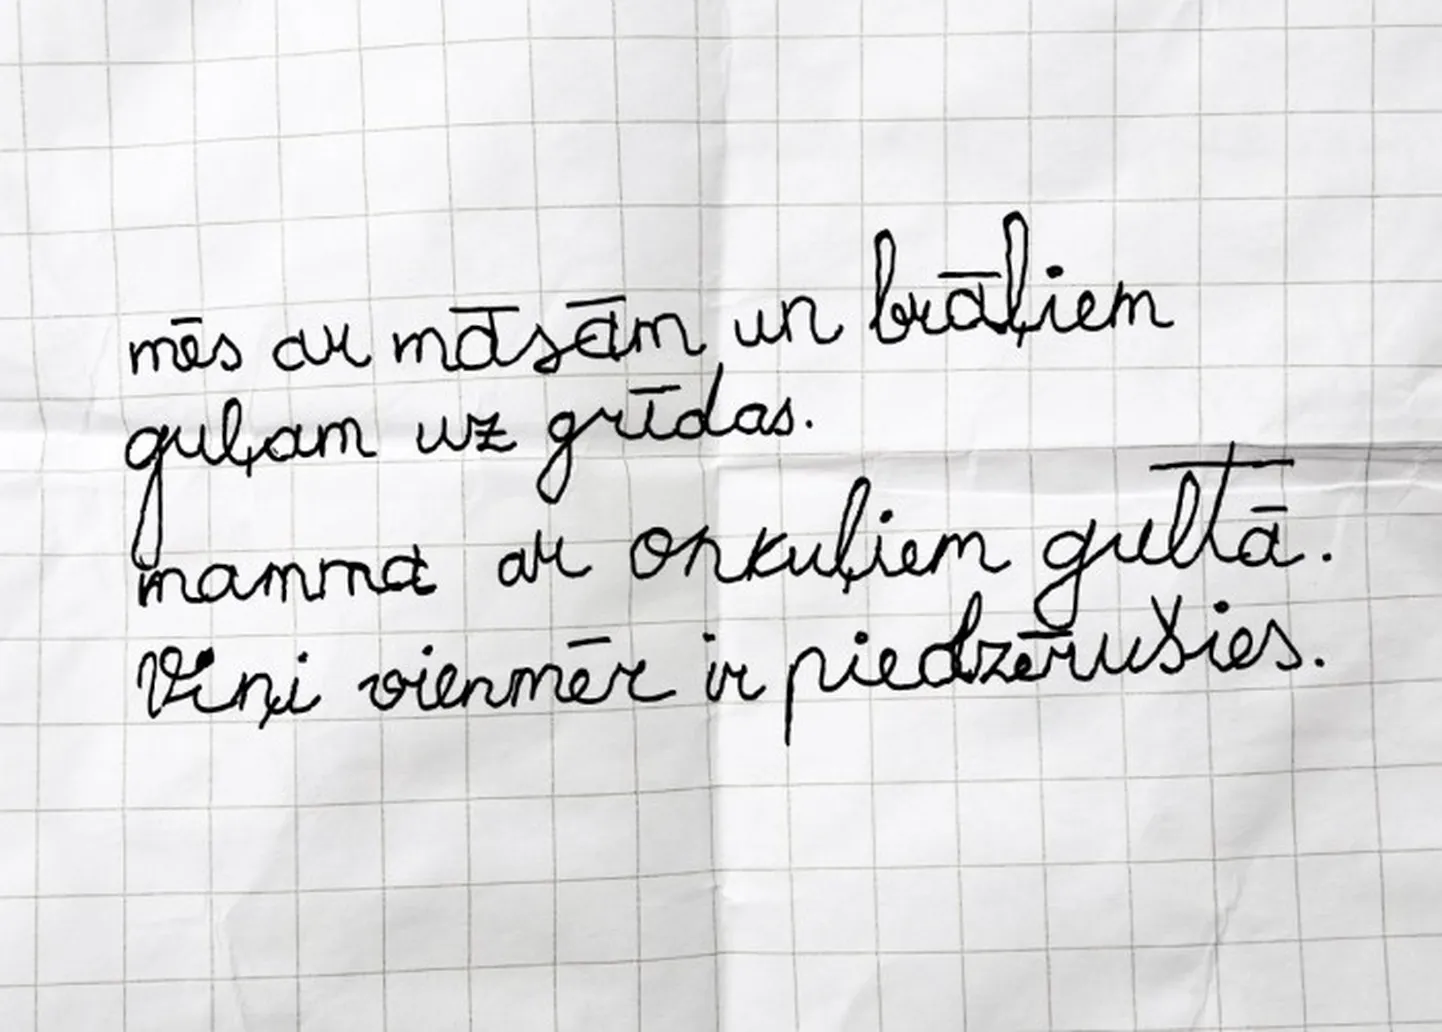 mēs ar māsām un brāļiem
guļam uz grīdas.
mamma ar onkuļiem gultā.
Viņi vienmēr ir piedzērušies.